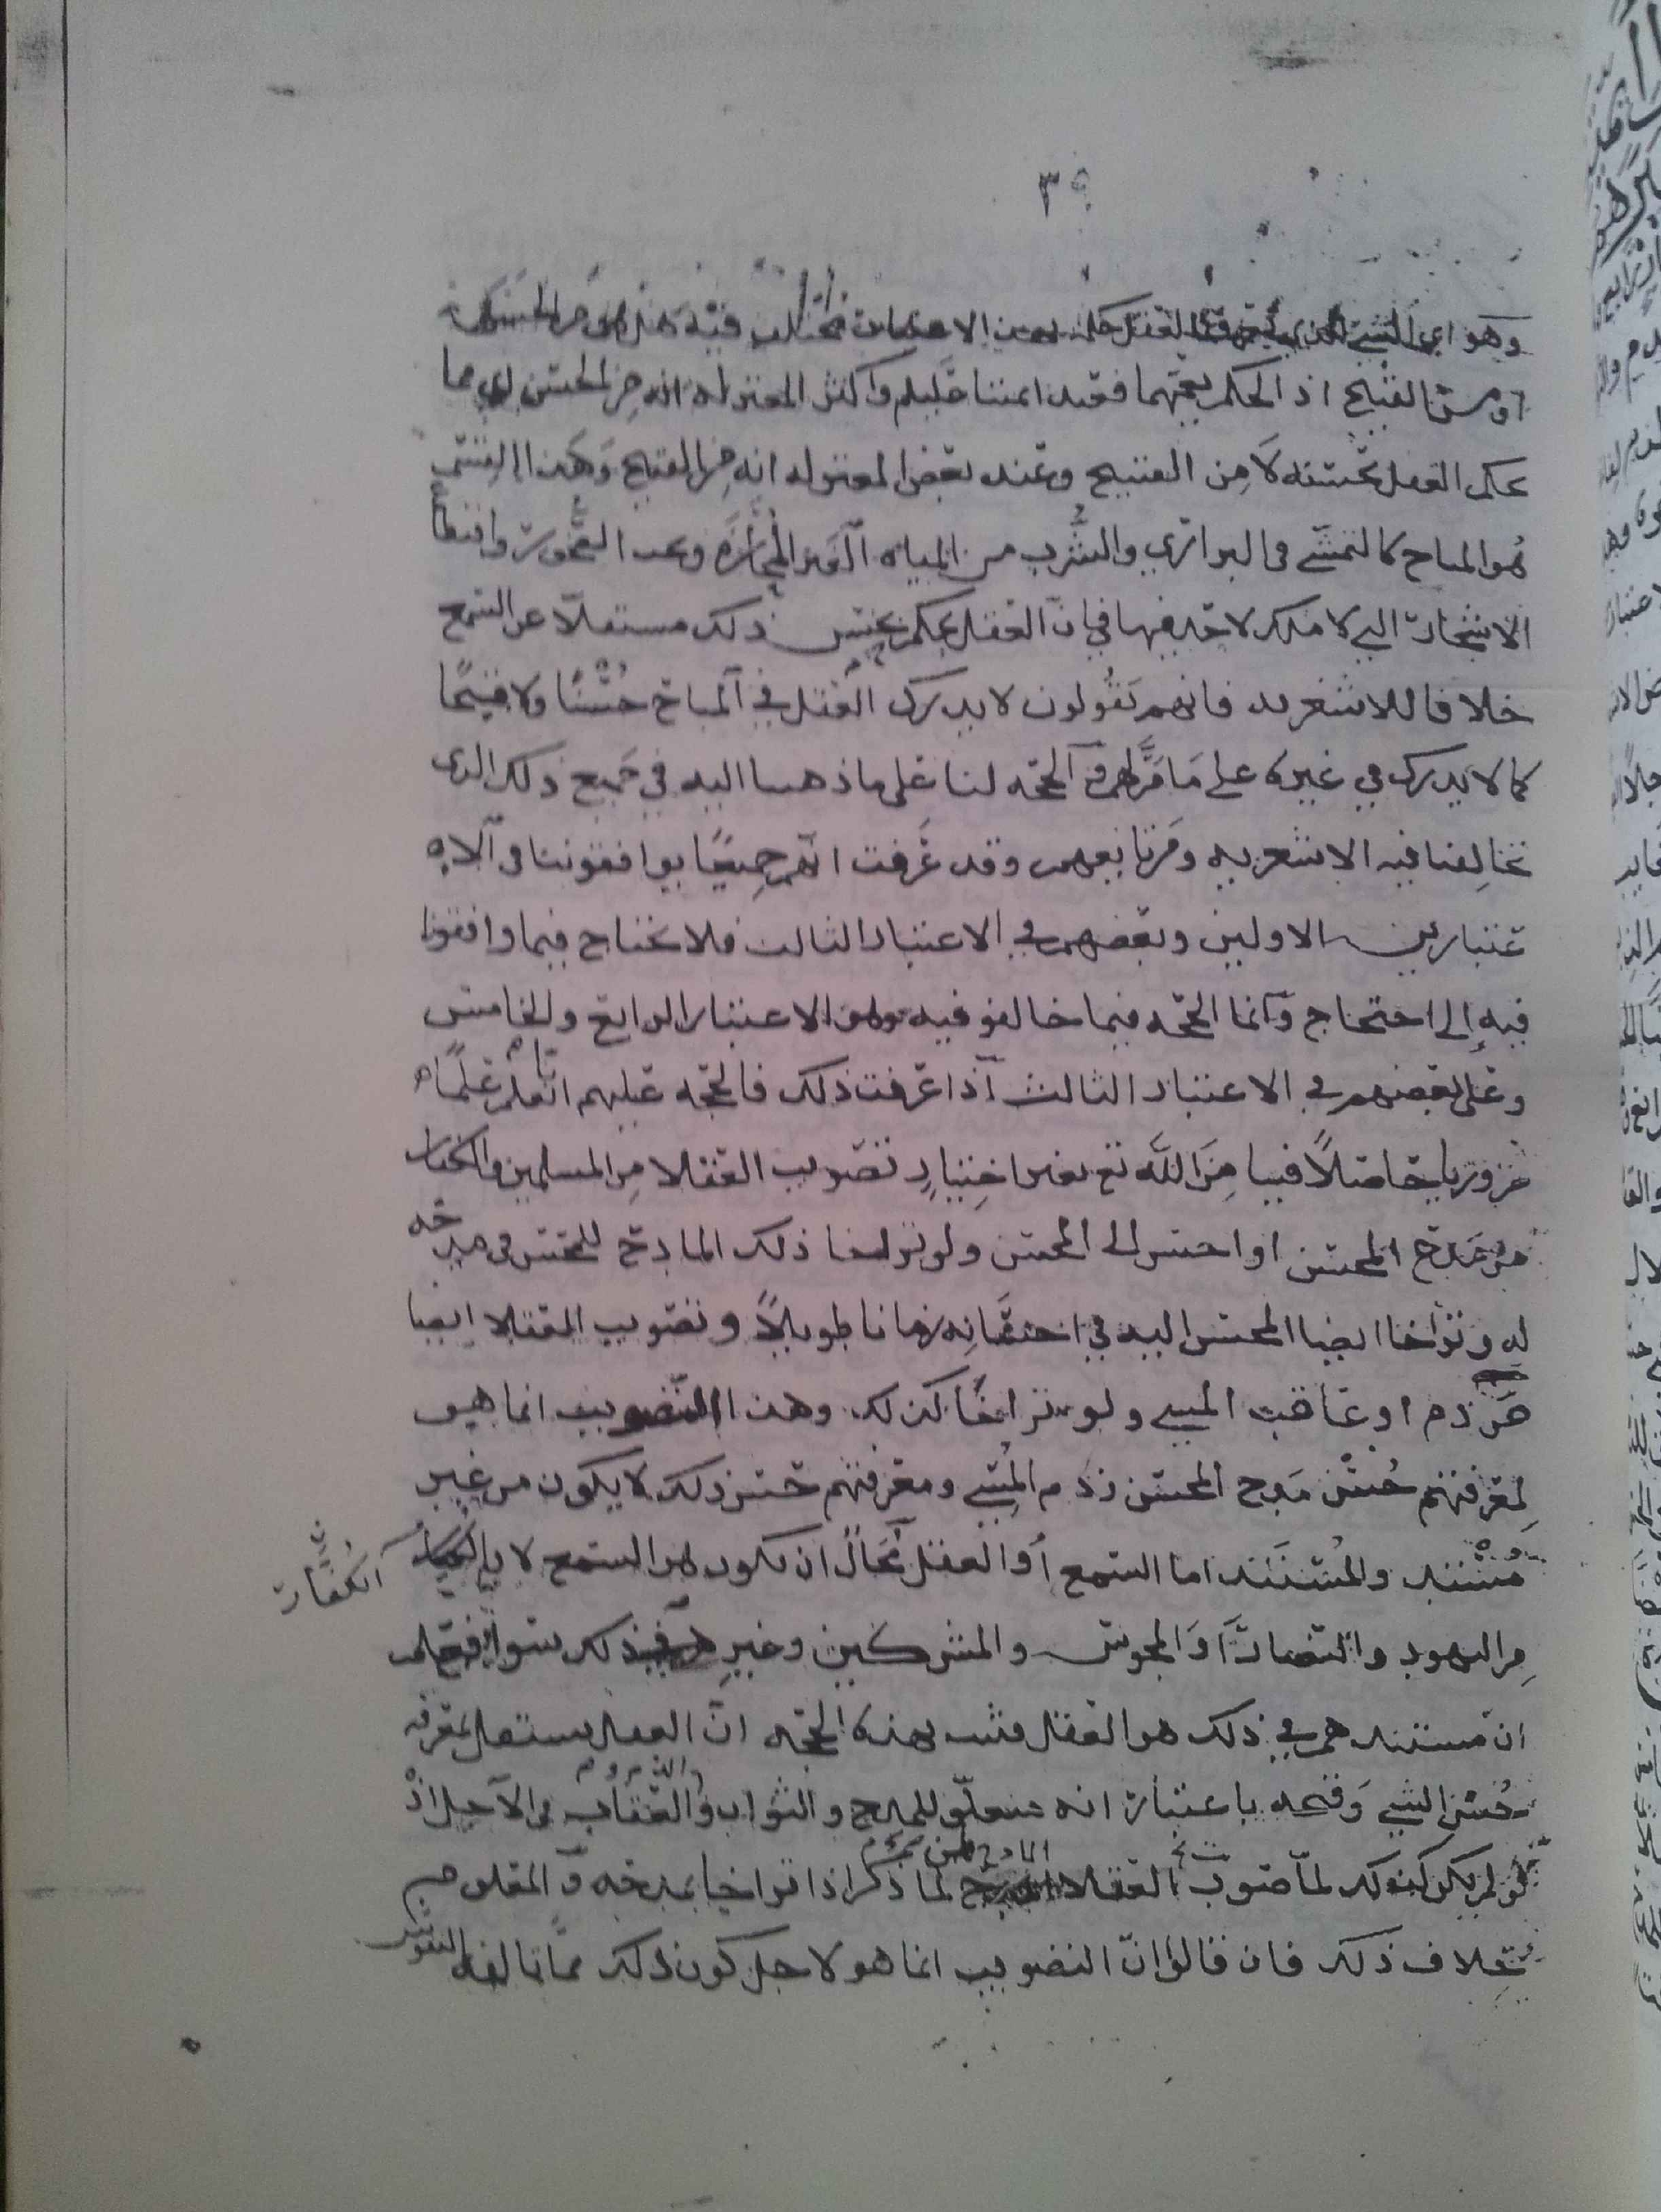 ٣٩
وهو اي الشي الذي العقل الاعتبارات مختلف فيه هل هو من الحسن
او من القبيح اذ الحكم يعمهما فعند ائمتنا عليلم واكثر المعتزله انه من الحسن اي مما
حكم العقل بحسنه لا من القبيح وعند بعض المعتزله انه من القبيح وهذا القسم
هو المباح كالتمشي في البراري والشرب من المياه الغير المحازه ونحت الصخور واقتطاع
الاشجار التي لا ملك لاحد فيها في ان العقل يحكم بحسن ذلك مستقلا عن السمع
خلافا للاشعريه فانهم يقولون لا يدرك العقل في المباح حسنا ولا قبيحا
كما لا يدرك في غيره على ما مر لهم والحجه لنا على ما ذهبنا اليه في جميع ذلك الذي
تخالفنا فيه الاشعريه ومن تابعهم وقد عرفت انهم جميعا يوافقوننا في الا
عتبارين الاولين وبعضهم في الاعتبار الثالث فلا نحتاج فيما وافقونا
فيه الى احتجاج وانما الحجه فيما خالفو فيه وهو الاعتبار الرابع والخامس
وعلى بعضهم في الاعتبار الثالث اذا عرفت ذلك فالحجه عليهم انا نعلم علما
ضروريا حاصلا فينا من الله تع بغير اختيار تصويب العقلا من المسلمين والكفار
من مدح المحسن او احسن الى المحسن ولو تراخا ذلك المادح للمحسن في مدحه
له وتراخا ايضا المحسن اليه في احسانه زمانا طويلا وتصويب العقلا ايضا
من ذم او عاقب المسي ولو تراخا كذلك وهذا التصويب انما هو
لمعرفتهم حسن مدح المحسن وذم المسي ومعرفتهم حسن ذلك لا يكون من غير
مستند والمستند اما السمع او العقل محال ان يكون هو السمع لان الكفار
الكفار
من اليهود والنصارا والمجوس والمشركين وغيرهم في ذلك سوا فعلم
ان مستندهم في ذلك هو العقل فثبت بهذه الحجه ان العقل يستقل بمعرفه
حسن الشي وقبحه باعتبار انه متعلق للمدح والثواب والذم والعقاب في الاجل اذ
لو لم يكن كذلك لما صوب العقلا المادح لمن ذكر اذا تراخيا بمدحه والمعلوم
خلاف ذلك فان قالوا ان التصويب انما هو لاجل كون ذلك مما تالفه النفوس